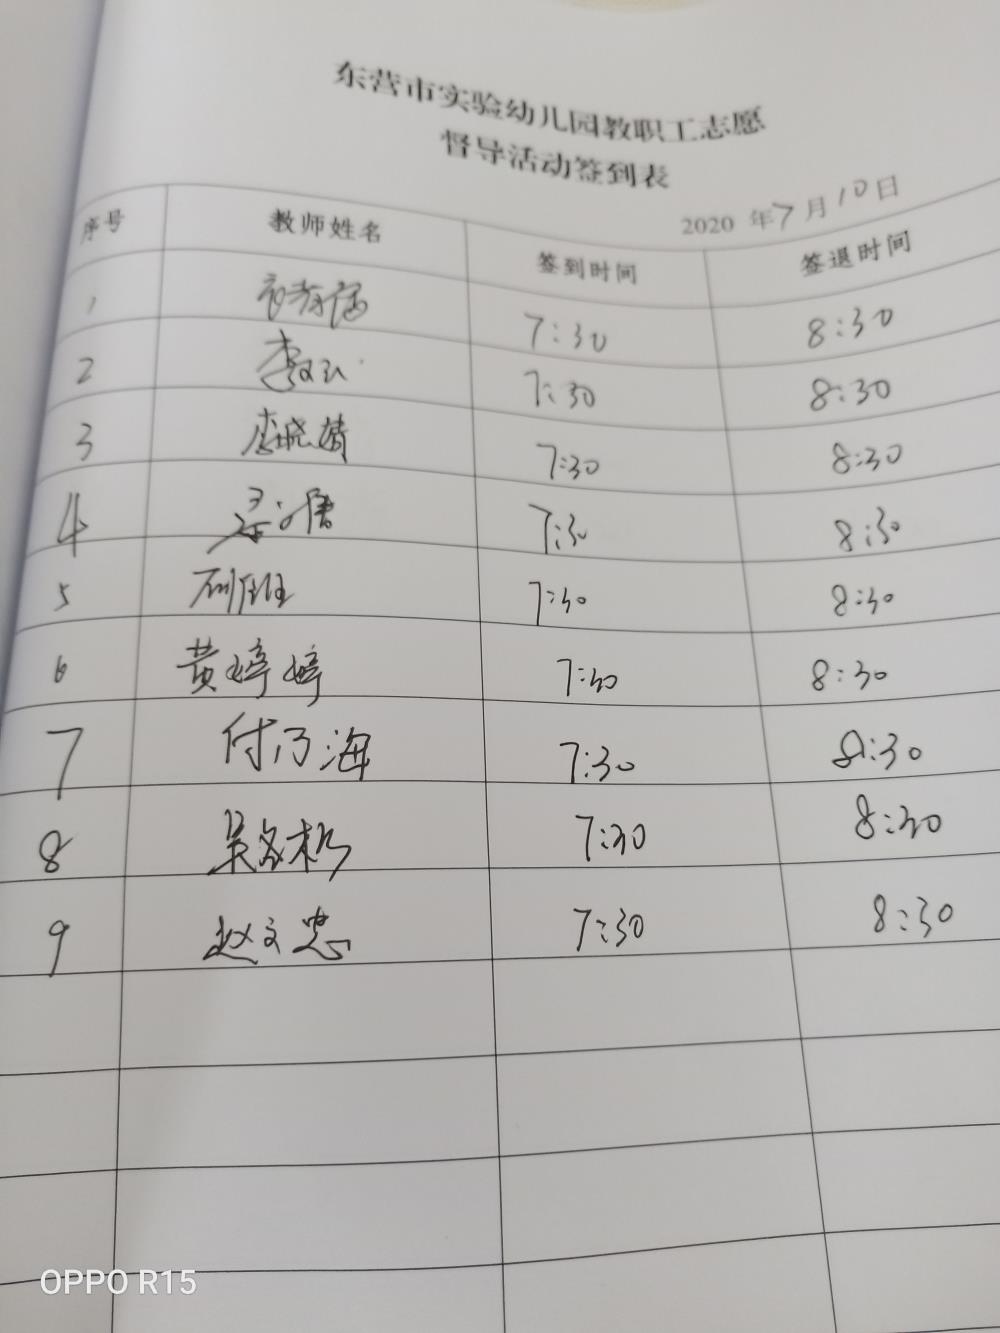 东营市实验幼儿园教职工志愿
督导活动签到表
2020 年7月10日
序号 教师姓名 签到时间 签退时间
1 7:30 8:30
2 李 7:30 8:30
3 李晓婧 7:30 8:30
4 7:30 8:30
5 7:30 8:30
6 黄婷婷 7:30 8:30
7 付乃海 7:30 8:30
8 吴 7:30 8:30
9 赵文忠 7:30 8:30
OPPO R15